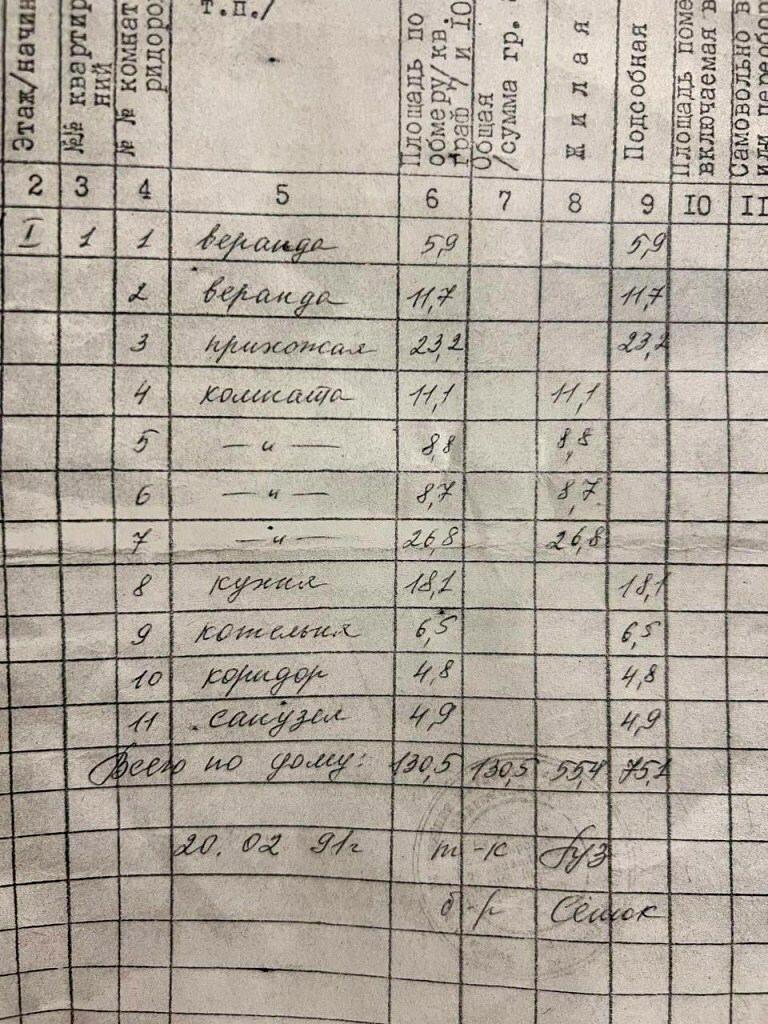 т.п./
Этаж/начин
№№ квартир
ний
№ № комнат
ридоро
Площадь по
обмеру/кв.
граф 7 и 10
Общая
/сумма гр.
Жилая
Подсобная
Площадь поме
включаемая в
Самовольно в
или переобор
2 3 4 5 6 7 8 9 10 11
I 1 1 веранда 5,9 5,9
2 веранда 11,7 11,7
3 прихожая 23,2 23,2
4 комната 11,1 11,1
5 — и — 8,8 8,8
6 — и — 8,7 8,7
7 — и — 26,8 26,8
8 кухня 18,1 18,1
9 котельня 6,5 6,5
10 коридор 4,8 4,8
11 санузел 4,9 4,9
Всего по дому: 130,5 130,5 55,4 75,1
20.02 91г т-к Гуз
б-р Семок